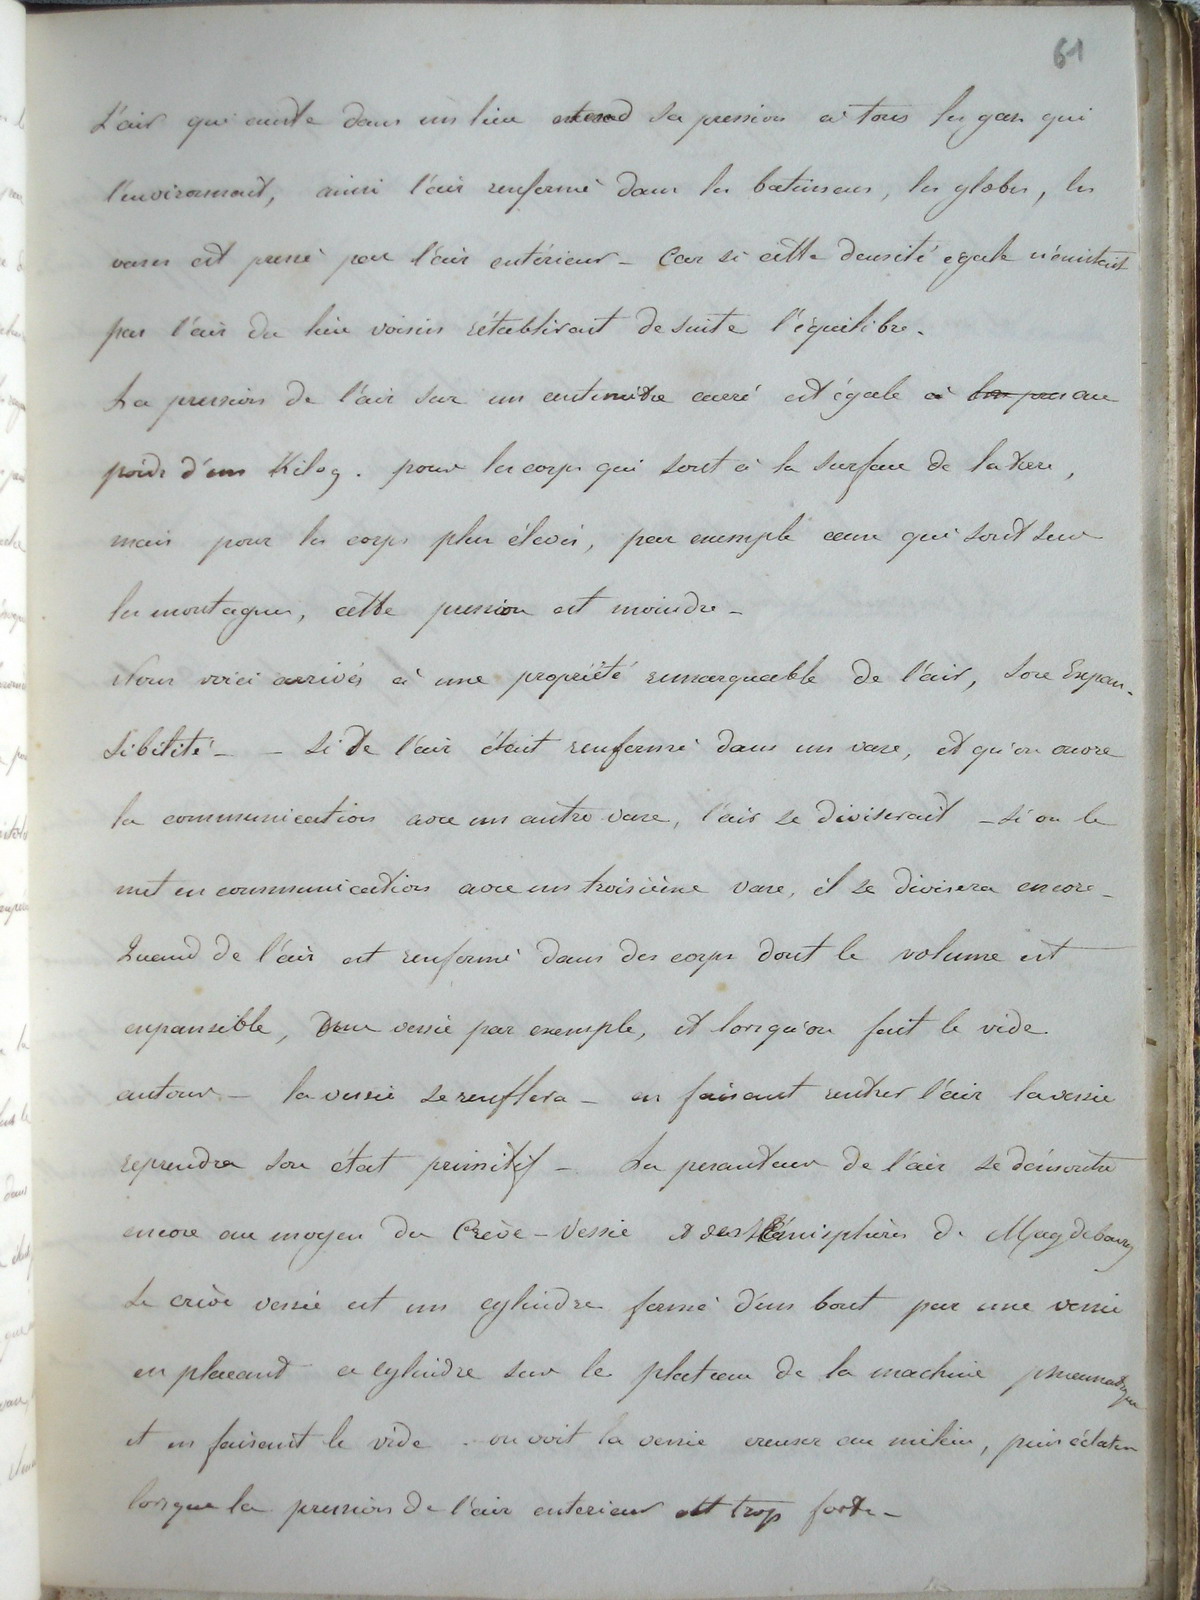 61
L'air qui existe dans un lieu etend sa pression à tous les gaz qui
l'environnent, ainsi l'air renfermé dans les batiments, les globes, les
vases est pressé par l'air extérieur - Car si cette densité egale n'existait
pas l'air du lieu voisin rétablirait de suite l'équilibre.
La pression de l'air sur un centimètre carré est égale à au
poids d'un Kilog. pour les corps qui sont à la surface de la terre,
mais pour les corps plus élevés, par exemple ceux qui sont sur
les montagnes, cette pression est moindre -
Nous voici arrivés à une propriété remarquable de l'air, son Expan-
sibilité - - Si de l'air était renfermé dans un vase, et qu'on ouvre
la communication avec un autre vase, l'air se diviserait - si on le
met en communication avec un troisième vase, il se divisera encore -
Quand de l'air est renfermé dans des corps dont le volume est
expansible, une vessie par exemple, et lorsqu'on fait le vide
autour - la vessie se renflera - en faisant rentrer l'air la vessie
reprendra son état primitif - La pesanteur de l'air se démontre
encore au moyen du Crève-Vessie et des Hémisphères de Magdebourg
Le crève vessie est un cylindre fermé d'un bout par une vessie
en placant ce cylindre sur le plateau de la machine pneumatique
et en faisant le vide - on voit la vessie creuser au milieu, puis éclater
lorsque la pression de l'air exterieur est trop forte -